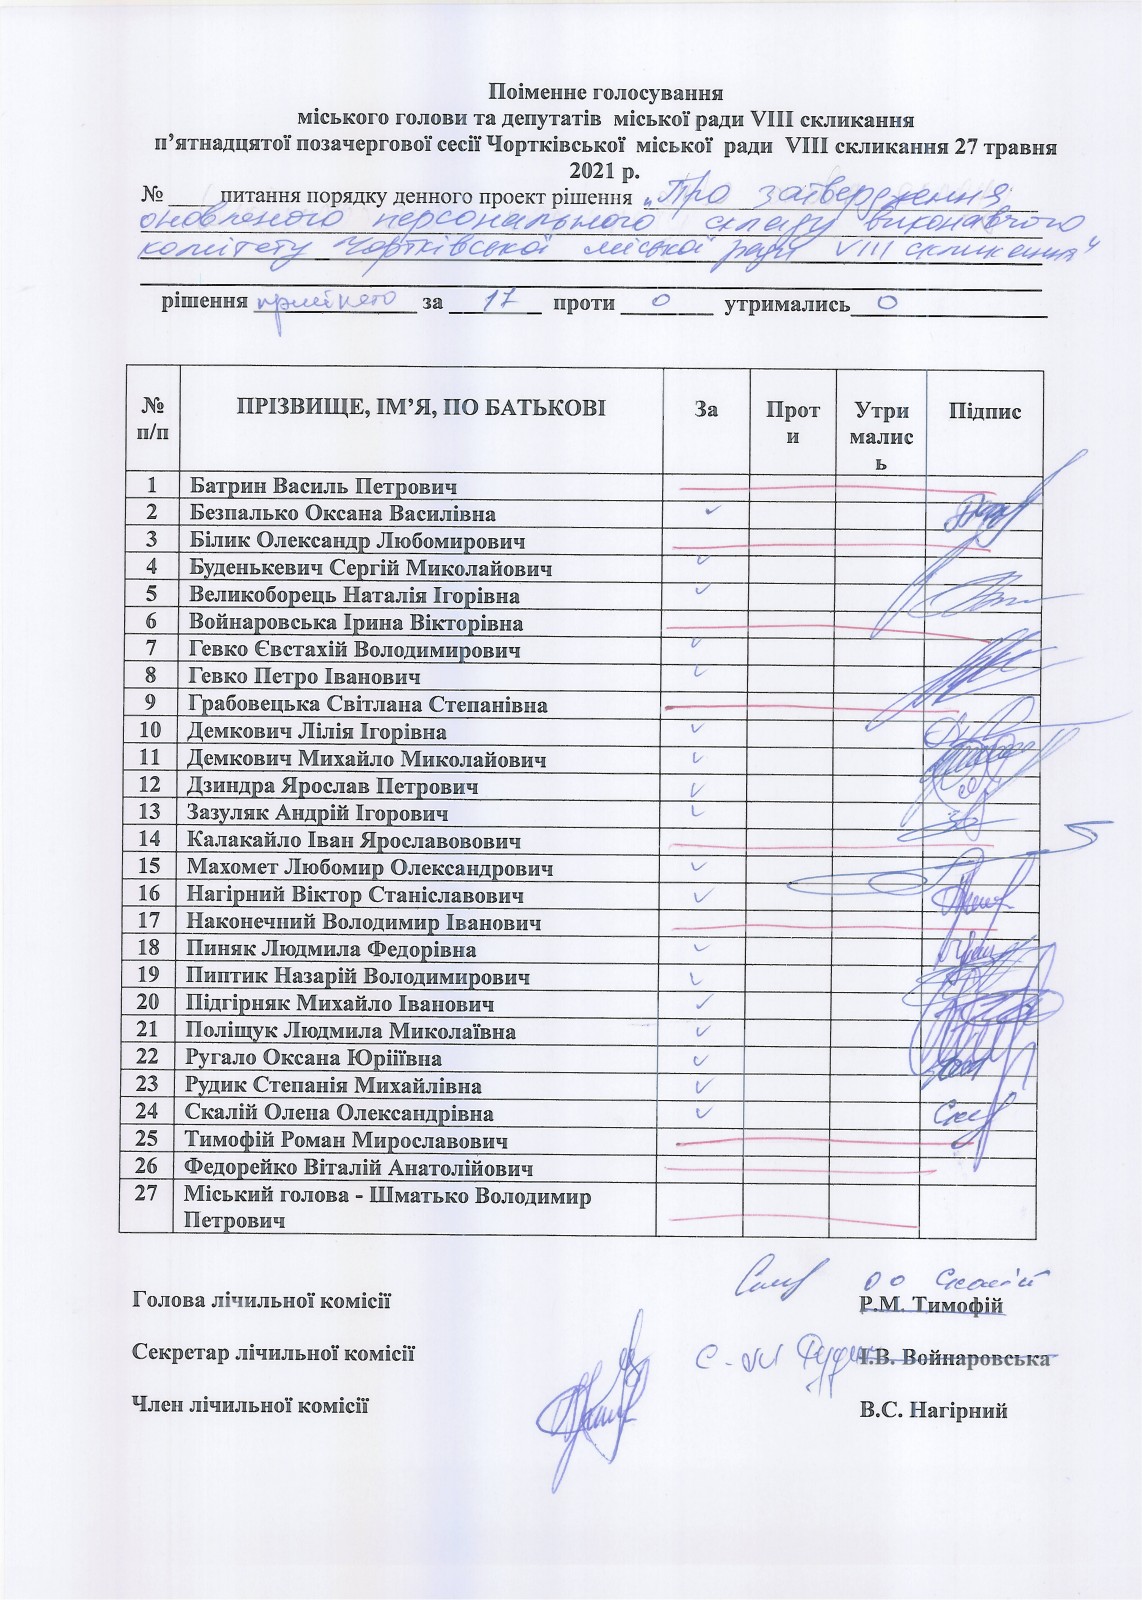 Поіменне голосування
міського голови та депутатів міської ради VIII скликання
п’ятнадцятої позачергової сесії Чортківської міської ради VIII скликання 27 травня
2021 р.
№ ____ питання порядку денного проект рішення „Про затвердження
оновленого персонального складу виконавчого
комітету Чортківської міської ради VIII скликання“
рішення прийнято за 17 проти 0 утримались 0
№ п/п ПРІЗВИЩЕ, ІМ’Я, ПО БАТЬКОВІ За Проти Утрималиcь Підпис
1 Батрин Василь Петрович
2 Безпалько Оксана Василівна ✓
3 Білик Олександр Любомирович
4 Буденькевич Сергій Миколайович ✓
5 Великоборець Наталія Ігорівна ✓
6 Войнаровська Ірина Вікторівна
7 Гевко Євстахій Володимирович ✓
8 Гевко Петро Іванович ✓
9 Грабовецька Світлана Степанівна
10 Демкович Лілія Ігорівна ✓
11 Демкович Михайло Миколайович ✓
12 Дзиндра Ярослав Петрович ✓
13 Зазуляк Андрій Ігорович ✓
14 Калакайло Іван Ярославовович
15 Махомет Любомир Олександрович ✓
16 Нагірний Віктор Станіславович ✓
17 Наконечний Володимир Іванович
18 Пиняк Людмила Федорівна ✓
19 Пиптик Назарій Володимирович ✓
20 Підгірняк Михайло Іванович ✓
21 Поліщук Людмила Миколаївна ✓
22 Ругало Оксана Юріїівна ✓
23 Рудик Степанія Михайлівна ✓
24 Скалій Олена Олександрівна ✓
25 Тимофій Роман Мирославович
26 Федорейко Віталій Анатолійович
27 Міський голова - Шматько Володимир
Петрович
оо Скалій
Голова лічильної комісії Р.М. Тимофій
Секретар лічильної комісії І.В. Войнаровська
Член лічильної комісії В.С. Нагірний